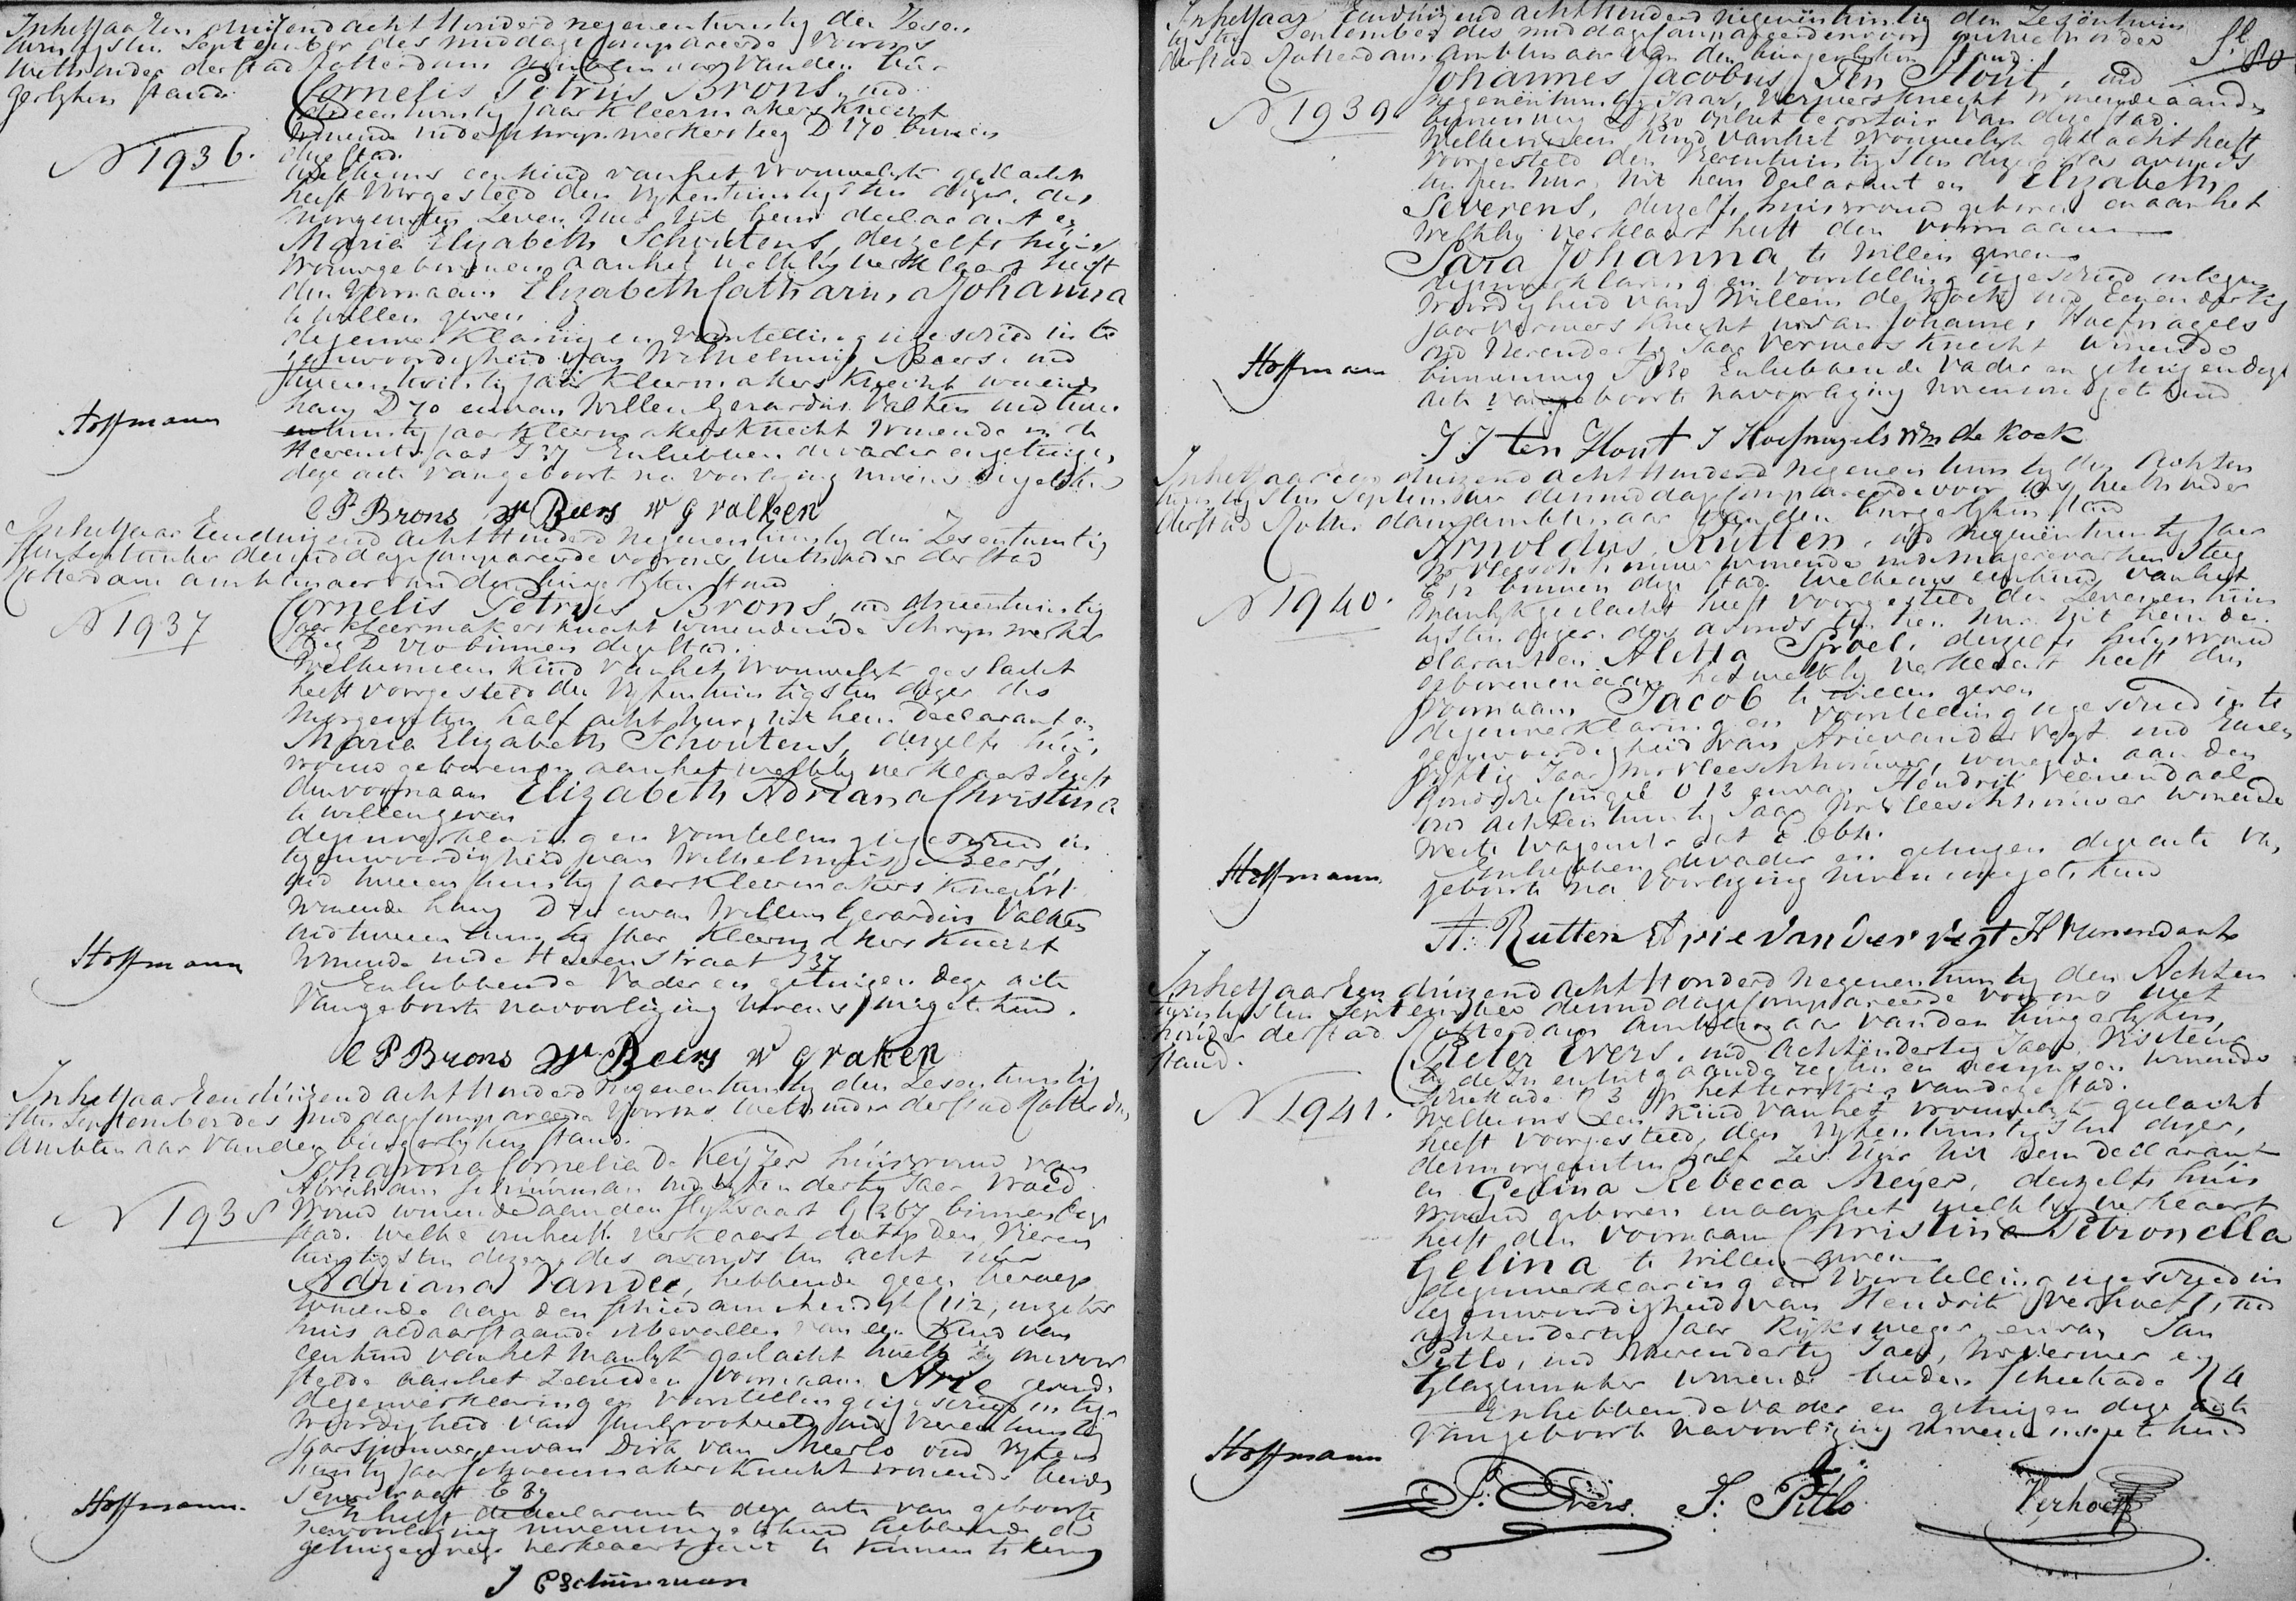 In het Jaar Een duizend acht Honderd negenentwintig den Zesen
twintigsten September des middags Compareerde Voor ons
Wethouder der Stad Rotterdam Ambtenaar van den Bur
gerlyken stand
Cornelis Petrus Brons, oud
drieentwintig Jaar Kleermakers Knecht
wonende in de schrijnwerkersteeg D 170 binnen
N 1936.
deze stad.
Welke ons een kind van het Vrouwelyk geslacht
heeft Voorgesteld den Vyfentwintigsten dezer, des
morgens ten Zeven Uur Uit hem declarant en
Maria Elizabeth Schoutens, deszelfs huis
vrouw geboren en aan het welk hy verklaart heeft
den Voornaam Elizabeth Catharina Johanna
te willen geven
deze verklaring en Voorstelling is geschied in te
genwoordigheid van Wilhelmus Beers, oud
tweeentwintig Jaar Kleermakers Knecht wonende
haag D 70 en van Willem Gerardus Valken oud twee
entwintig Jaar Kleermakers Knecht wonende in de
Hoffmann
Heerenstraat I 37 En hebben de vader en getuigen
deze acte van geboorte na voorlezing nevens ons getekend
C P Brons W Beers W G Valken
In het Jaar Eenduizend acht Honderd Negenentwintig den Zesentwintig
sten September des middags Compareerde voor ons Wethouder der Stad
Rotterdam ambtenaar van den burgerlyken stand
N 1937
Cornelis Petrus Brons, oud drieentwintig
Jaar Kleermakers knecht wonende in de Schrijnwerkers
steeg D 170 binnen deze stad.
Welke ons een Kind van het Vrouwelyk geslacht
heeft voorgesteld den Vyfentwintigsten dezer des
morgens ten half acht uur, uit hem declarant en
Maria Elizabeth Schoutens, deszelfs huis
vrouw geboren en aan het welk hy verklaart heeft
den voornaam Elizabeth Adriana Christina
te willen geven
deze verklaring en voorstelling is geschied in
tegenwoordigheid van Wilhelmus Beers,
oud tweeentwintig Jaar Kleermakers Knecht
wonende haag D 70 en van Willem Gerardus Valken
oud tweeentwintig Jaar Kleermakers Knecht
Hoffmann
wonende in de Heerenstraat I 37
En hebben de Vader en getuigen deze acte
van geboorte na voorlezing nevens ons getekend.
C P Brons W Beers W G Valken
In het Jaar Een duizend acht Honderd Negenentwintig den Zesentwintig
sten September des middags Compareerde Voor ons Wethouder der Stad Rotterdam
Ambtenaar van den burgerlyken stand.
Johanna Cornelia de Keijzer huisvrouw van
Abraham Schuurman oud Vyfendertig Jaar Vroed
N 1938
vrouw wonende aan den Slykvaart G 267 binnen deze
stad. Welke ons heeft verklaart dat op den Vieren
twintigsten dezer des avonds ten acht uur
Adriana Vandee, hebbende geen beroep
wonende aan den Schiedamschendyk 112, in zeker
huis aldaar staande is bevallen van een Kind van
een kind van het Manlyk geslacht hwelk zy ons voor
stelde aan het Zelve den Voornaam Arie gevende
deze verklaring en voorstelling is geschied in tegen
woordigheid van oud Vierentwintig
Jaar en van Dirk van Meerlo oud Vyfen
twintig Jaar schoenmakers knecht wonende beide
Hoffmann.
Peperstraat E 89
En heeft de declarante deze acte van geboorte
na voorlezing nevens ons getekend hebbende de
getuigen verklaart niet te kunnen tekenen
J C Schuurman
In het Jaar Eenduizend acht honderd negenentwintig den Zesentwin
tigsten September des middags Compareerde voor ons wethouder
der stad Rotterdam Ambtenaar van den burgerlyken stand.
fl. 80
Johannes Jacobus Ten Hout, oud
N 1939
negenentwintig Jaar, Ververs knecht wonende aan den
binnenweg I 130 op het territoir van deze stad.
Welke ons een kind van het vrouwelyk geslacht heeft
Voorgesteld den Vierentwintigsten dezer des avonds
ten tien Uur, uit hem declarant en Elizabeth
Severens, deszelfs huisvrouw geboren en aan het
Welk hy verklaart heeft den voornaam
Sara Johanna te willen geven
deze verklaring en voorstelling is geschied in tegen
woordigheid van Willem de Kock oud Eenendertig
Jaar Ververs Knecht en van Johannes Hoefnagels
oud Vierendertig Jaar Ververs Knecht wonende
Hoffmann
binnenweg I 130 En hebben de Vader en getuigen deze
acte van geboorte na voorlezing nevens ons getekend
J J ten Hout J Hoefnagels Wm de Kock
In het Jaar Een duizend acht Honderd Negenentwintig den Achten
twintigsten September des middags Compareerde voor ons wethouder
der stad Rotterdam ambtenaar van den burgerlyken stand
Arnoldus Rutten, oud Negenentwintig Jaar
Mr Vleeschhouwer wonende in de Magerevarkensteeg
N 1940.
E 12 binnen deze stad. Welke ons een kind van het
Manlyk geslacht heeft voorgesteld den Zevenentwin
tigsten dezer des avonds ten tien Uur Uit hem de
clarant en Aletta Sproel, deszelfs huisvrouw
geboren en aan het welk hy verklaart heeft den
voornaam Jacob te willen geven
deze verklaring en voorstelling is geschied in te
genwoordigheid van Arie van der Vegt oud Eenen
vyftig Jaar Mr Vleeschhouwer, wonende aan den
Goudschesingel O 12 en van Hendrik Veenendaal
oud achtentwintig Jaar Mr Vleeschhouwer wonende
Weste Wagenstraat E 664.
Hoffmann.
En hebben de vader en getuigen deze acte van
geboorte na voorlezing nevens ons getekend
A: Rutten Arie van der Vegt H Veenendaal
In het Jaar Een duizend acht Honderd Negenentwintig den Achten
twintigsten September des middags Compareerde voor ons Wet
houder der stad Rotterdam Ambtenaar van den burgerlyken
stand.
Pieter Evers, oud Achtendertig Jaar, Visiteur
by de In en uitgaande regten en accynsen wonende
N 1941.
Schiekade C 3 op het territoir van deze stad.
Welke ons een Kind van het Vrouwelyk geslacht
heeft Voorgesteld, den Vyfentwintigsten dezer,
des morgens ten half zes Uur uit hem declarant
en Gelina Rebecca Meijer, deszelfs huis
vrouw geboren en aan het welk hy verklaart
heeft den Voornaam Christina Petronella
Gelina te willen geven
deze verklaring en Voorstelling is geschied in
tegenwoordigheid van Hendrik Verhoeff, oud
achtendertig Jaar Rijksweger en van Jan
Pitlo, oud Jaar, Mr Verwer en
Glazenmaker wonende beiden Schiekade C 4
En hebben de Vader en getuigen deze acte
Hoffmann
van geboorte na voorlezing nevens ons getekend
P: Evers. J: Pitlo Verhoeff